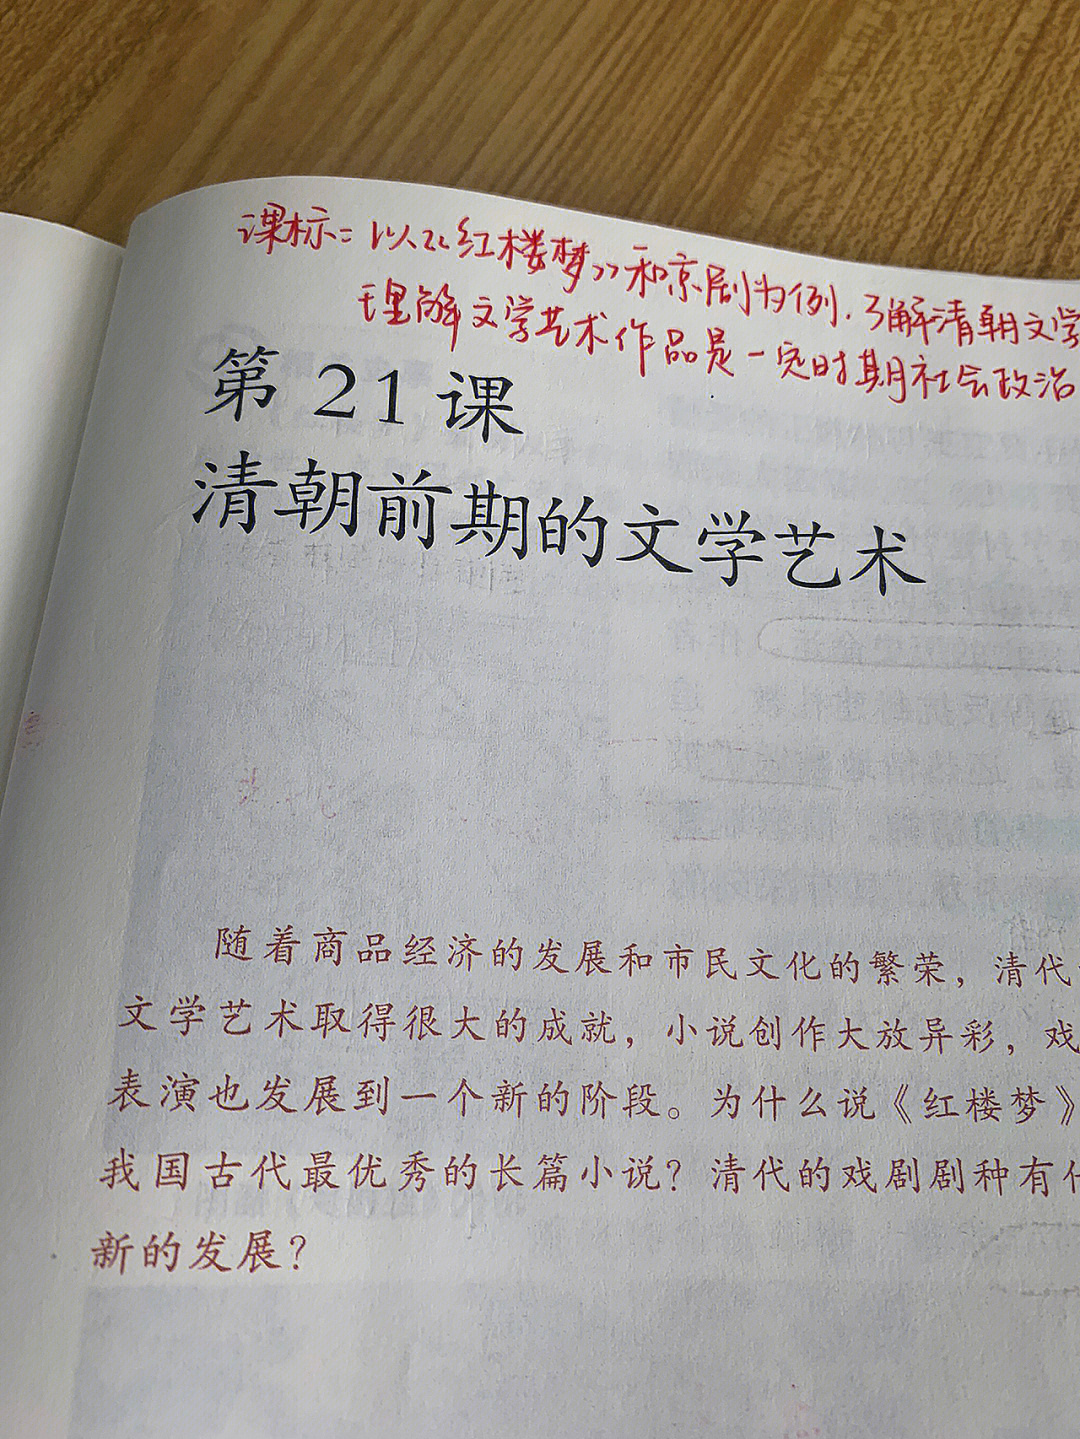 课标：以《红楼梦》和京剧为例，了解清朝文学
理解文学艺术作品是一定时期社会政治
第21课
清朝前期的文学艺术
随着商品经济的发展和市民文化的繁荣，清代
文学艺术取得很大的成就，小说创作大放异彩，戏
表演也发展到一个新的阶段。为什么说《红楼梦》
我国古代最优秀的长篇小说？清代的戏剧剧种有什
新的发展？